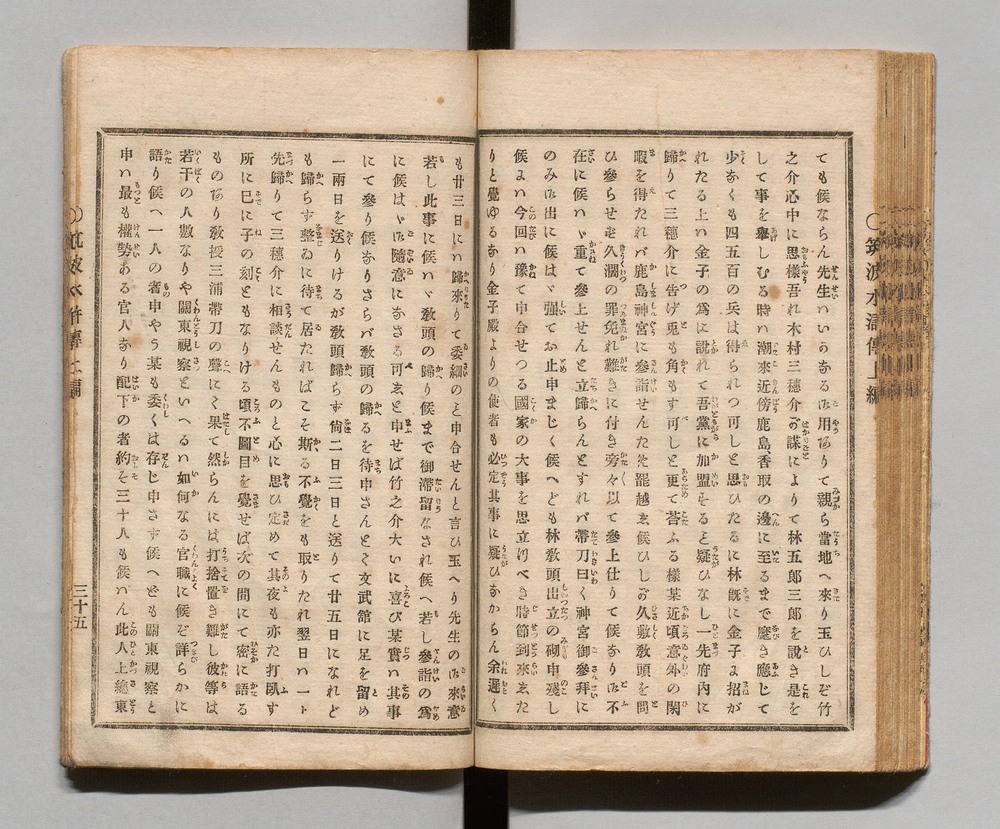 〇筑波水滸傳上編
ても候ならん先生ハいうあるは用ありて親ら當地へ來り玉ひしぞ竹
之介心中に思樣吾れ木村三穗介お謀によりて林五郎三郎を說き是を
して事を擧しむる時ハ潮來近傍鹿島香取の邊に至るまで麾き應じて
少あくも四五百の兵は得られつ可しと思ひたるに林旣に金子よ招が
れたる上ハ金子の爲に說れて吾黨に加盟そると疑ひなし一先府內に
歸りて三穗介に告げ兎も角もす可しと更て荅ふる樣某近頃意外の閑
暇を得たれバ鹿島神宮に參詣せんたゑ罷越ゑ候ひしお久敷敎頭を問
ひ參らせゑ久濶の罪免れ難きに付き旁々以て參上仕りて候ありは不
在に候ハゞ重て參上せんと立歸らんとすれバ帶刀曰く神宮御參拜に
のみは出に候はゞ强てお止申まじく候へども林敎頭出立の砌申殘し
候よハ今回ハ豫て申合せつる國家の大事を思立けべき時節到來ゑた
りと覺ゆるあり金子殿よりの使者も必定其事に疑ひあからん余遲く
も廿三日にハ歸來りて委細のと申合せんと言ひ玉へり先生のは來意
若し此事に候ハゞ敎頭の歸り候まで御滯留なされ候へ若し參詣の爲
に候はゞは隨意にあさる可ゑと申せば竹之介大いに喜び某實ハ其事
にて參り候ありさらバ敎頭の歸るを待申さんとく文武館に足を留め
一兩日を送りけるが敎頭歸らず尙二日三日と送りて廿五日になれど
も歸らす整ゐに待て居たればこそ斯る不覺をも取りたれ翌日ハ一ト
先歸りて三穗介に相談せんものと心に思ひ定めて其夜も亦た打臥す
所に已に子の刻ともなりける頃不圖目を覺せば次の間にて密に語る
ものあり敎授三浦帶刀の聲にく果て然らんには打捨置き難し彼等は
若干の人數なりや關東視察といへるハ如何なる官職に候ぞ詳らかに
語り候へ一人の者申やう某も委くは存じ申さす候へども關東視察と
申ハ最も權勢ある官人あり配下の者約そ三十人も候ハん此人上總東
〇筑波水滸傳上編
三十五